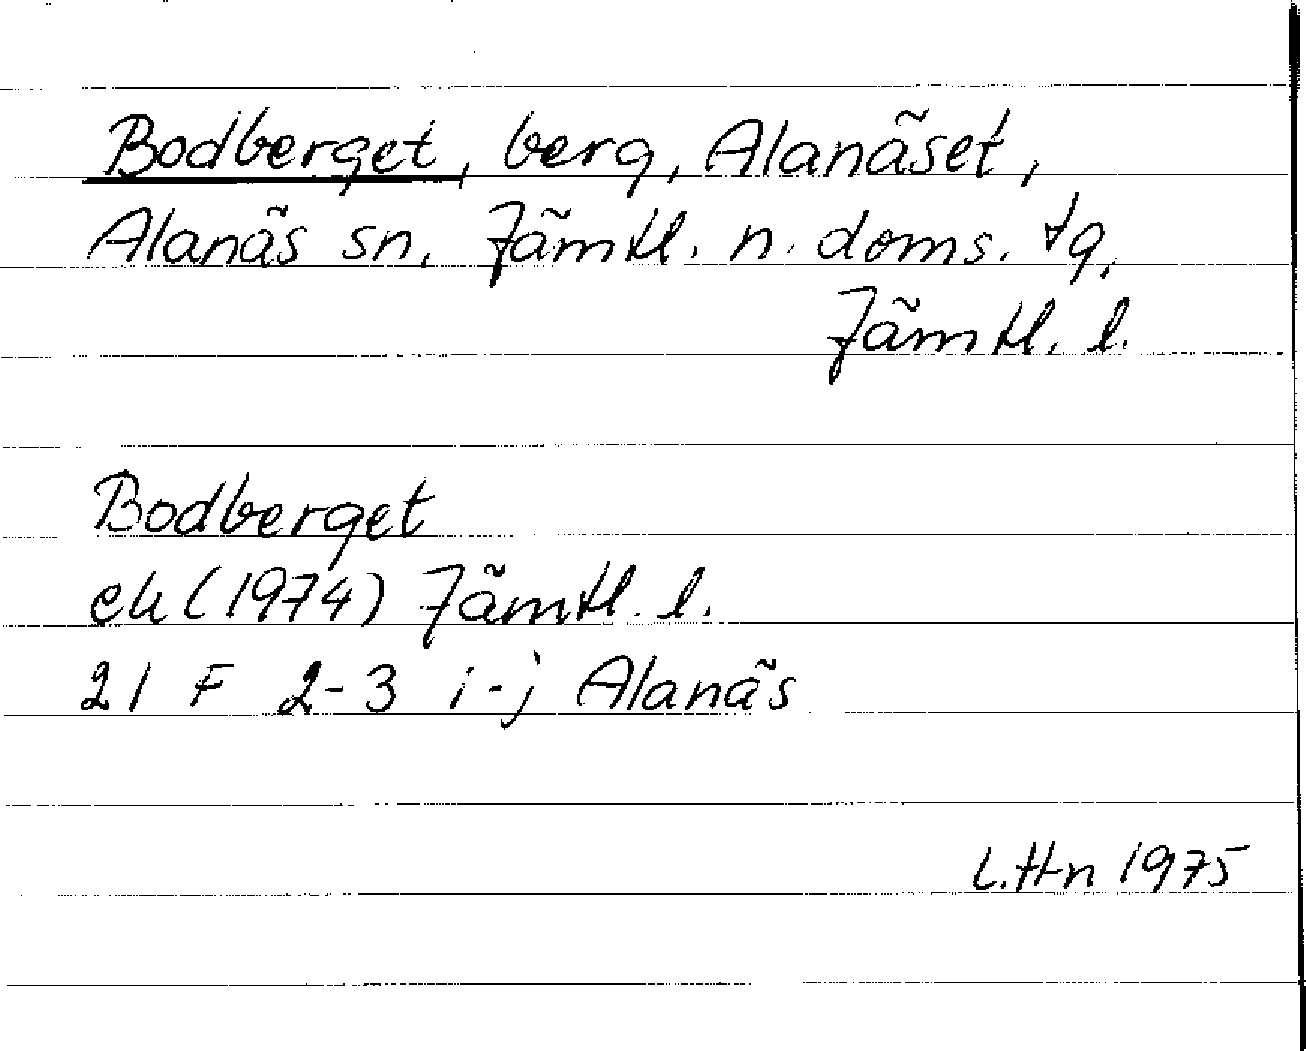 Bodberget, berg, Alanäset,
Alanäs sn. Jämtl. n. doms. tg,
Jämtl. l.
Bodberget
ek (1974) Jämtl. l.
21 F 2-3 i-j Alanäs
L.Hn 1975